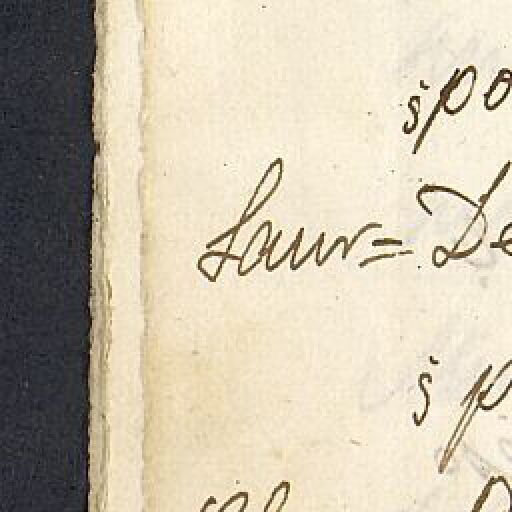 spo
Laur= De
s p